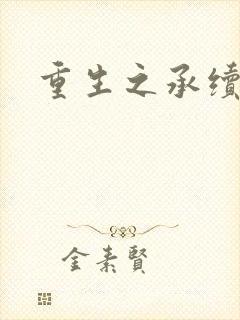 重生之承續
金素賢